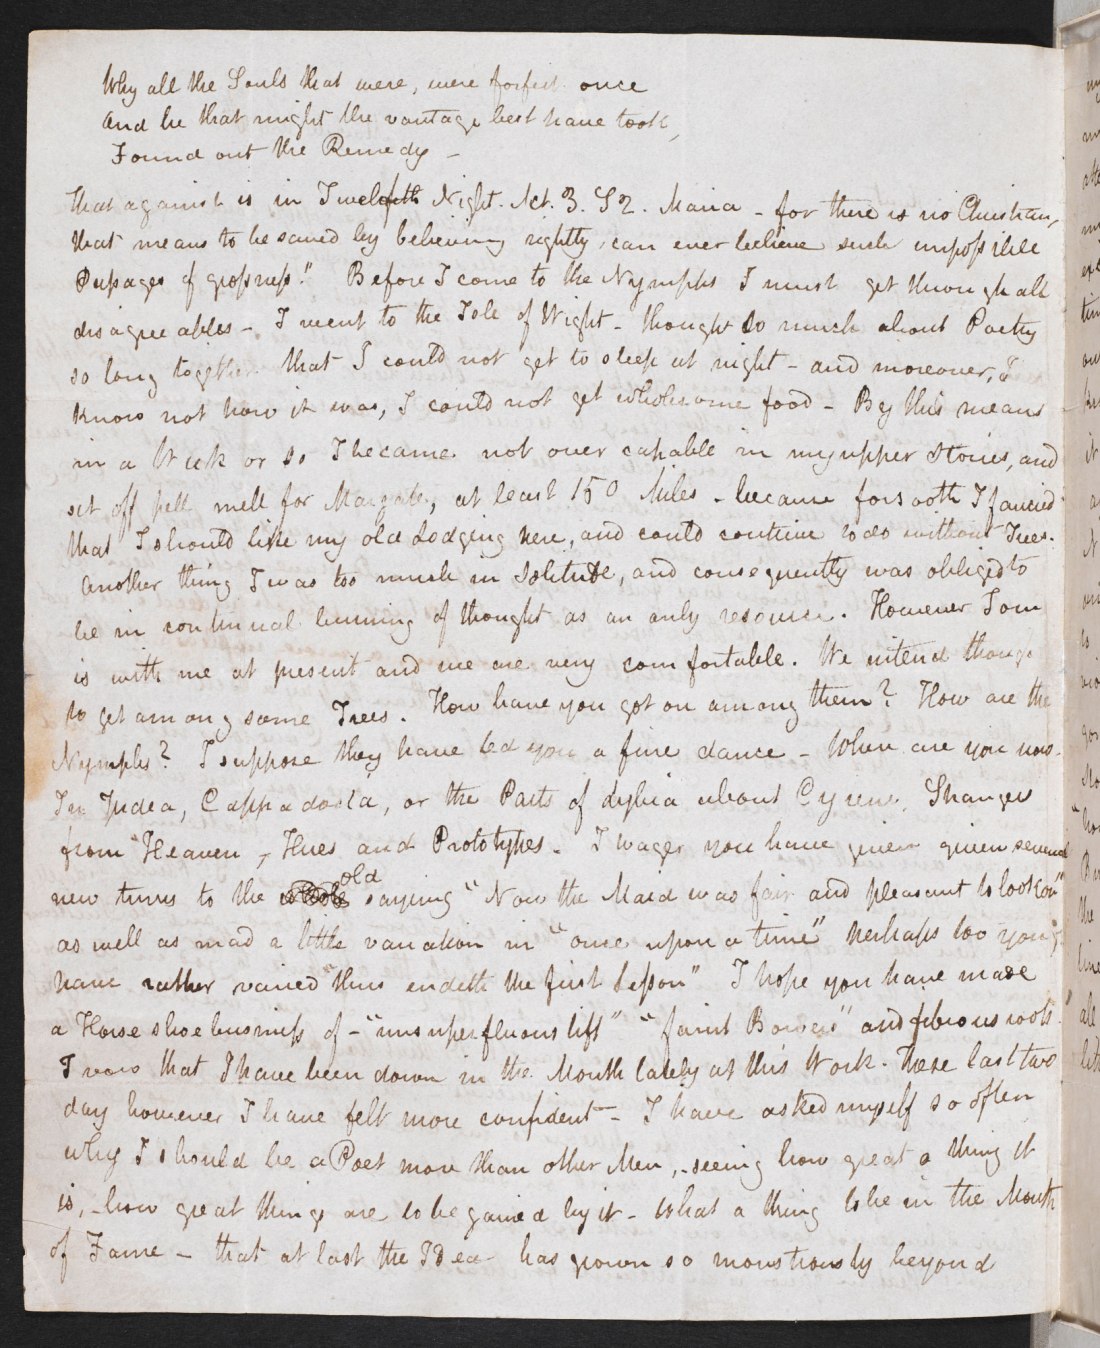 Why all the Souls that were, were forfeit once
And he that might the vantage best have took,
Found out the Remedy —
that against is in Twelfth Night. Act. 3. S 2. Maria – for there is no Christian,
that means to be saved by believing rightly, can ever believe such impossible
Passages of grossness!" Before I come to the Nymphs I must get through all
disagreeables – I went to the Isle of Wight – thought so much about Poetry
so long together that I could not get to sleep at night – and moreover, I
know not how it was, I could not get wholesome food – By this means
in a Week or so I became not over capable in my upper Stories, and
set off pell mell for Margate, at least 150 Miles – because forsooth I fancied
that I should like my old Lodging here, and could contrive to do without Trees.
Another thing I was too much in Solitude, and consequently was obliged to
be in continual burning of thought as an only resource. However Tom
is with me at present and we are very comfortable. We intend though
to get among some Trees. How have you got on among them? How are the
Nymphs? I suppose they have led you a fine dance – Where are you now –
In Judea, Cappadocia, or the Parts of Lybia about Cyrene, Strangers
from "Heaven, Hues and Prototypes. I wager you have given given several
new turns to the old saying "Now the Maid was fair and pleasant to look on"
as well as mad a little variation in "once upon a time" perhaps too you
have rather varied "thus endeth the first Lesson" I hope you have made
a Horse shoe business of – "unsuperfluous lift" "faint Bowers" and fibrous roots.
I vow that I have been down in the Mouth lately at this Work. These last two
day however I have felt more confident – I have asked myself so often
why I should be a Poet more than other Men, – seeing how great a thing it
is, – how great things are to be gained by it – What a thing to be in the Mouth
of Fame – that at last the Idea has grown so monstrously beyond